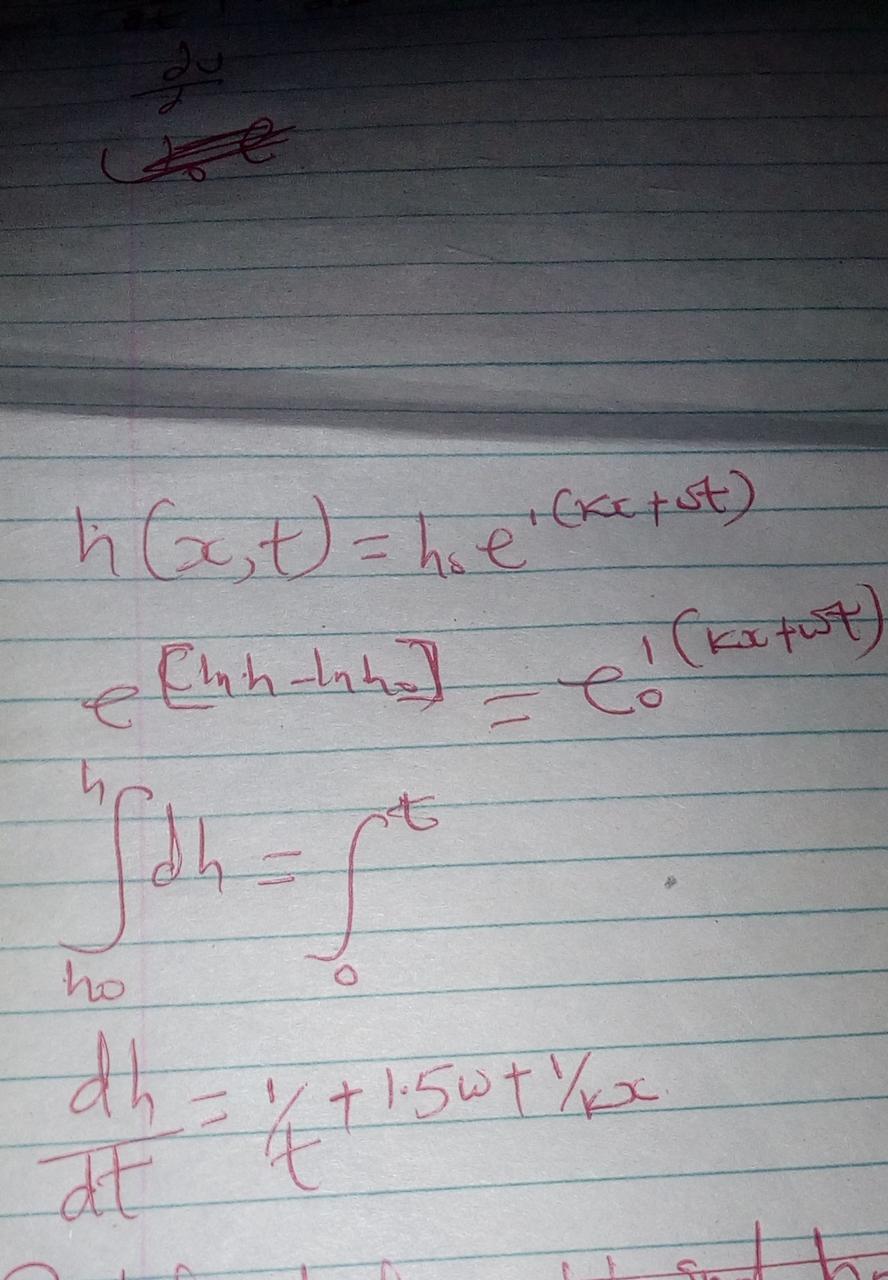 ∂u
h(x,t) = h₀ e^i(kx+ωt)
e^[ln h - ln h₀] = e₀^i(kx+ωt)
∫_h₀^h dh = ∫_0^t
dh/dt = 1/t + 1.5ω + 1/kx